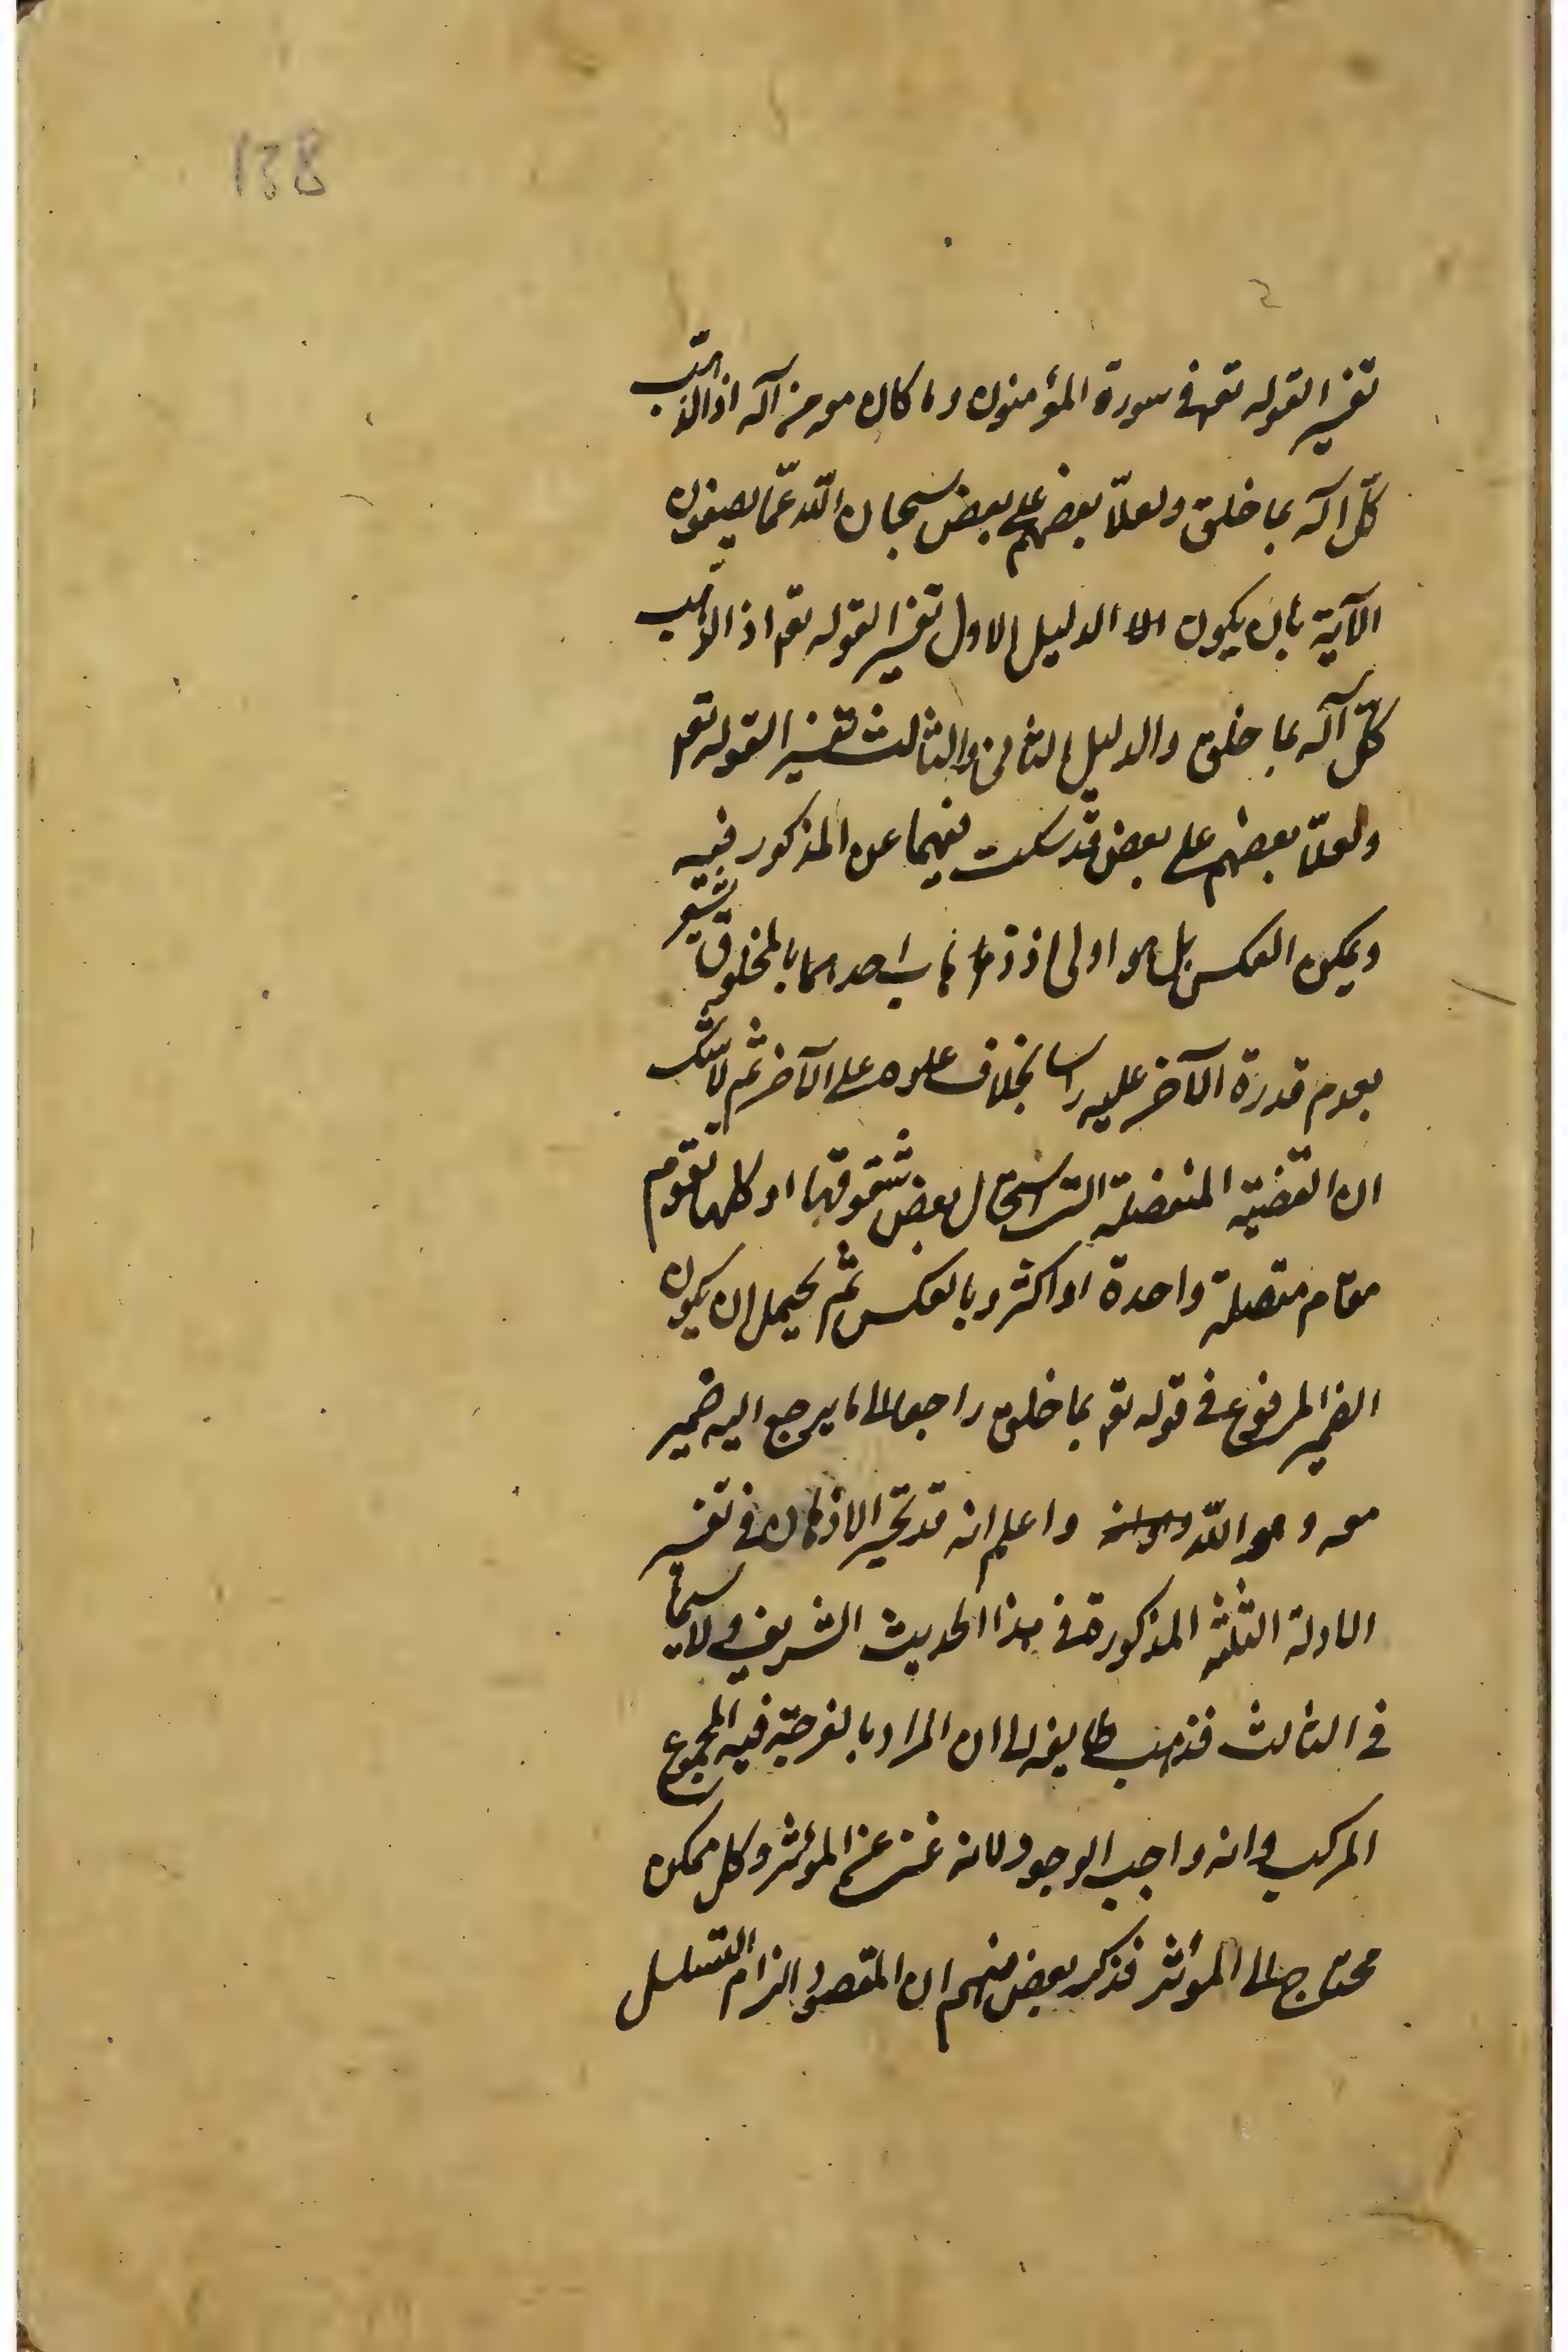 138
تفسيرا لقوله تعم فى سورة المؤمنون وما كان معه من آله اذا لذهب
كلّ اله بما خلق ولعلا بعضهم على بعض سبحان اللّه عمّا يصفون
الآية بان يكون الدليل الاول تفسيرا لقوله تعم اذا لذهب
كلّ آله بما خلق والدليل الثانى والثالث تفسيرا لقوله تعم
ولعلا بعضهم على بعض قد سكت فيهما عن المذكور فيه
ويمكن العكس بل هو اولى اذ ذهاب احدهما بالمخلوق يشعر
بعدم قدرة الآخر عليه راسا بخلاف علوه على الآخر ثم لا شك
ان القضية المنفصلة التى استحال بعض شقوقها او كلها تقوم
مقام متصلة واحدة او اكثر وبالعكس ثم يحتمل ان يكون
الضمير المرفوع فى قوله تعم بما خلق راجعا الى ما يرجع اليه ضمير
معه وهو اللّه واعلم انه قد تحير الاذهان فى تفسير
الادلة الثلثة المذكورة فى هذا الحديث الشريف ولا سيما
فى الثالث فذهب طايفة الى ان المراد بالفرجة فيه المجموع
المركب وانه واجب الوجود لانه غنى عن المؤثر وكل ممكن
محتاج الى المؤثر فذكر بعض منهم ان المقصود الزام التسلسل